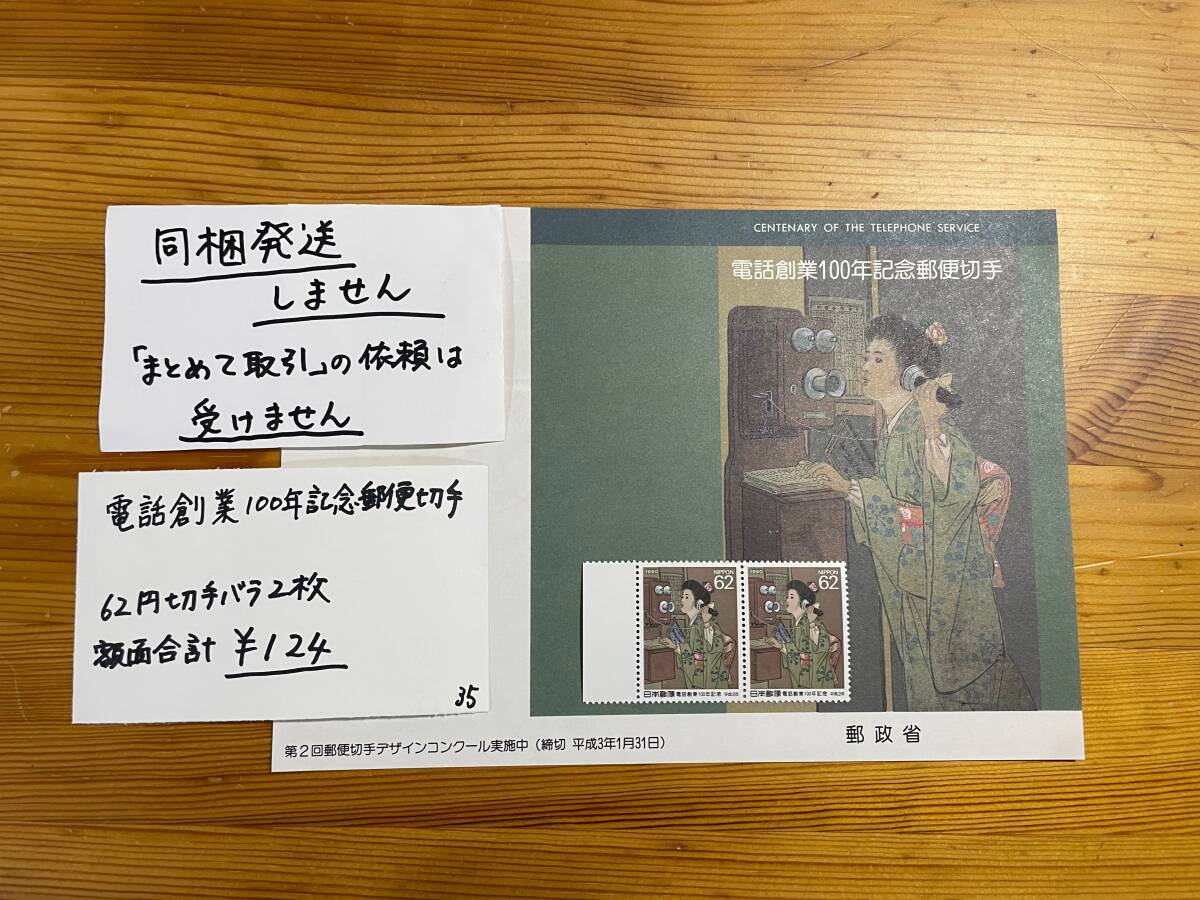 同梱発送
しません
「まとめて取引」の依頼は
受けません
電話創業100年記念郵便切手
62円切手バラ2枚
額面合計 ¥124
35
CENTENARY OF THE TELEPHONE SERVICE
電話創業100年記念郵便切手
1990 NIPPON
62
日本郵便 電話創業100年記念 平成2年
1990 NIPPON
62
日本郵便 電話創業100年記念 平成2年
郵政省
第2回郵便切手デザインコンクール実施中（締切 平成3年1月31日）